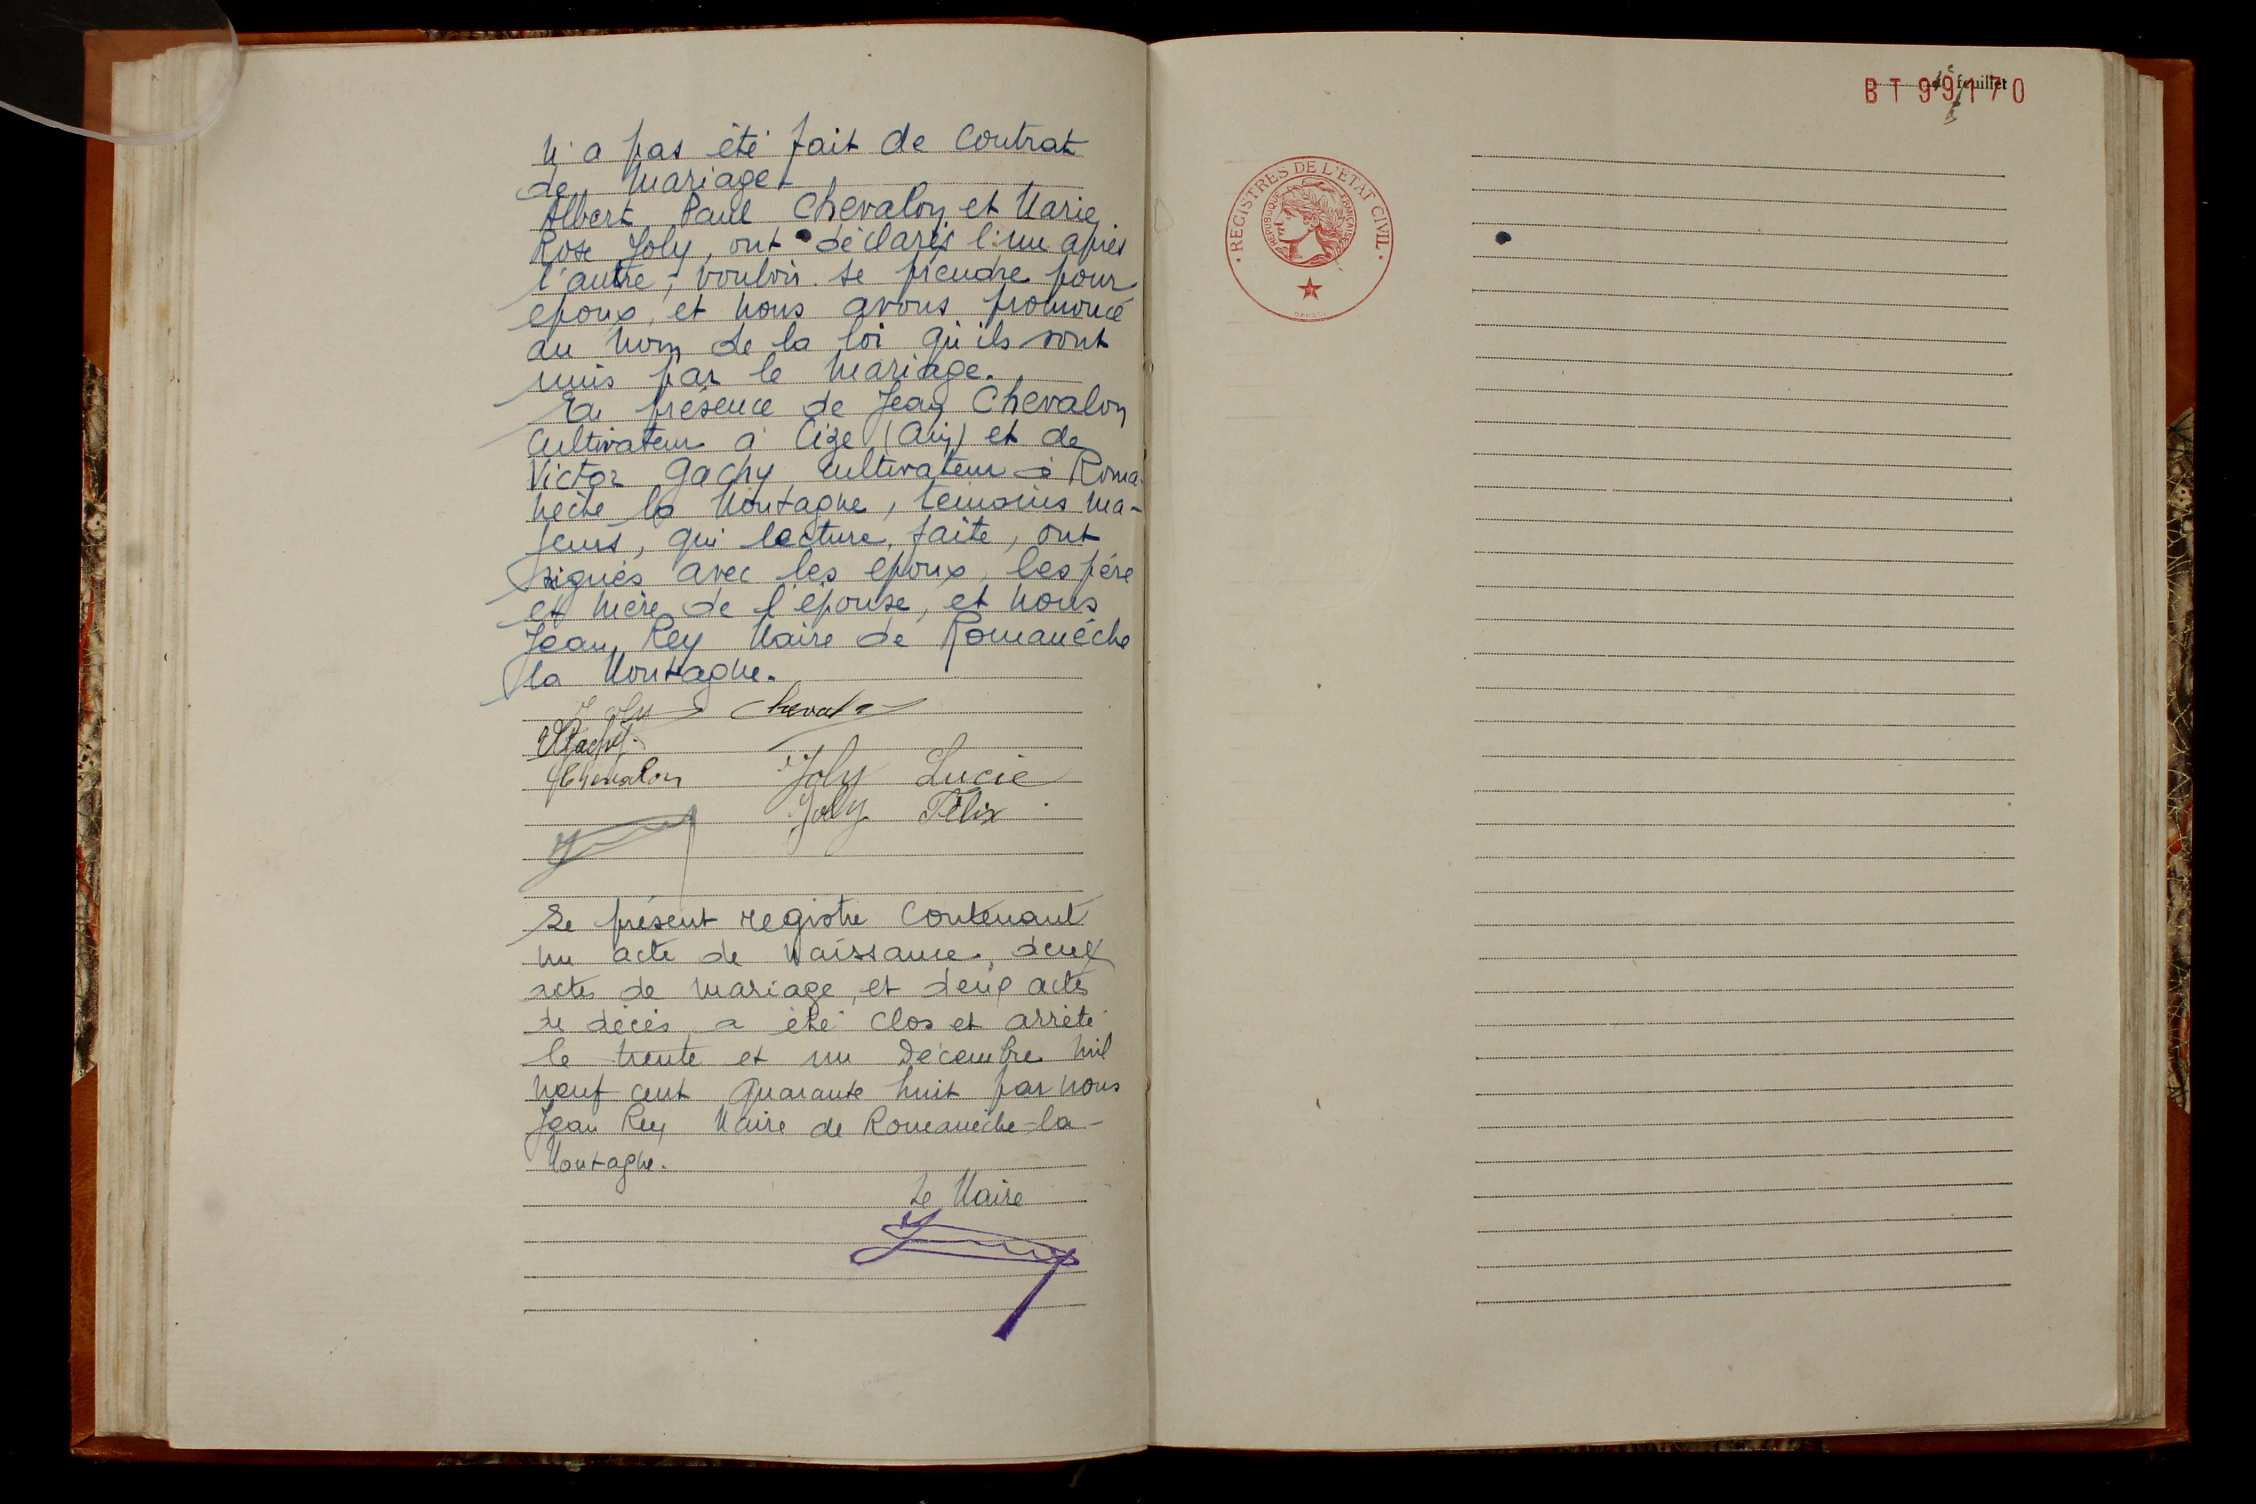 n'a pas été fait de contrat
de mariage
Albert Paul Chevalon et Marie
Rose Joly, ont déclarés l'un après
l'autre, vouloir se prendre pour
époux, et nous avons prononcé
au nom de la loi qu'ils sont
unis par le mariage.
En présence de Jean Chevalon
cultivateur à Cize (Ain) et de
Victor Gachy cultivateur à Roma-
nèche la Montagne, témoins ma-
jeurs, qui lecture faite, ont
signés avec les époux, les père
et mère de l'épouse, et nous
Jean Rey Maire de Romanèche
la Montagne.
Joly Chevalon
Gachy
Chevalon Joly Lucie
Joly Félix
Le présent registre contenant
un acte de naissance, deux
actes de mariage, et deux actes
de décès a été clos et arrêté
le trente et un décembre mil
neuf cent quarante huit par nous
Jean Rey Maire de Romanèche-la-
Montagne.
Le Maire
feuillet
BT 99170
REGISTRES DE L'ETAT CIVIL
REPUBLIQUE FRANÇAISE